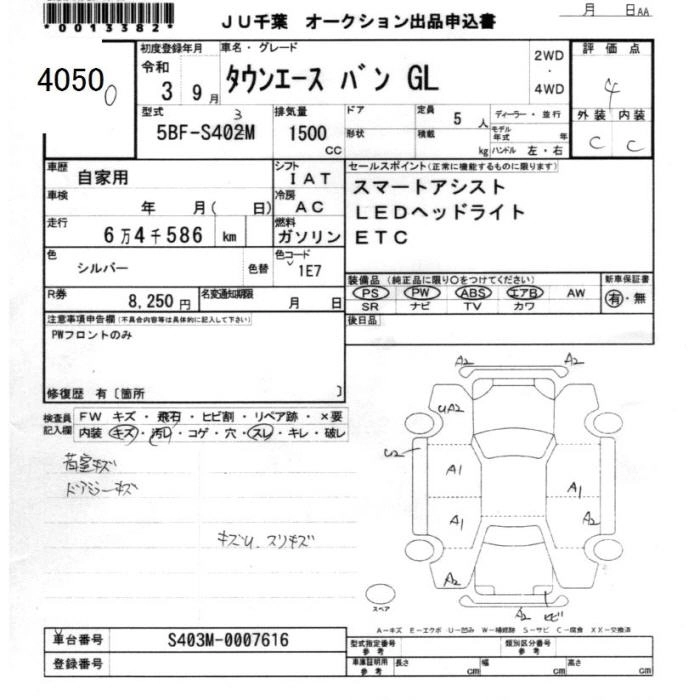 *0013382*
月 日AA
JU千葉 オークション出品申込書
4050
0
初度登録年月
令和
3 9月
車名・グレード
タウンエース バン GL
2WD
・
4WD
評価点
4
外装 内装
C C
型式
3
5BF-S402M
排気量
1500
CC
ドア
形状
定員
5人
積載
kg
ディーラー・並行
モデル年式 年
ハンドル 左・右
車歴
自家用
シフト
IAT
車検
年 月( 日)
冷房
AC
走行
6万4千586 km
燃料
ガソリン
色
シルバー
色替
色コード
1E7
R券
8,250円
名変通知期限
月 日
セールスポイント(正常に機能するものに限ります)
スマートアシスト
LEDヘッドライト
ETC
装備品(純正品に限り〇をつけてください)
PS PW ABS エアB AW
SR ナビ TV カワ
新車保証書
有・無
後日品
注意事項申告欄(不具合内容等は具体的に記入して下さい)
PWフロントのみ
修復歴 有〔箇所 〕
検査員記入欄
FW キズ・飛石・ヒビ割・リペア跡・×要
内装 キズ・汚レ・コゲ・穴・スレ・キレ・破レ
荷室キズ
ドアミラーキズ
キズU、スリキズ
A2 A2
UA2
S2
A1
A1
A1
A2
A2
A2 ヒビ
スペア
A-キズ E-エクボ U-凹み W-補修跡 S-サビ C-腐食 XX-交換済
車台番号
S403M-0007616
登録番号
型式指定番号
参考
類別区分番号
参考
車庫証明用
参考
長さ cm
幅 cm
高さ cm